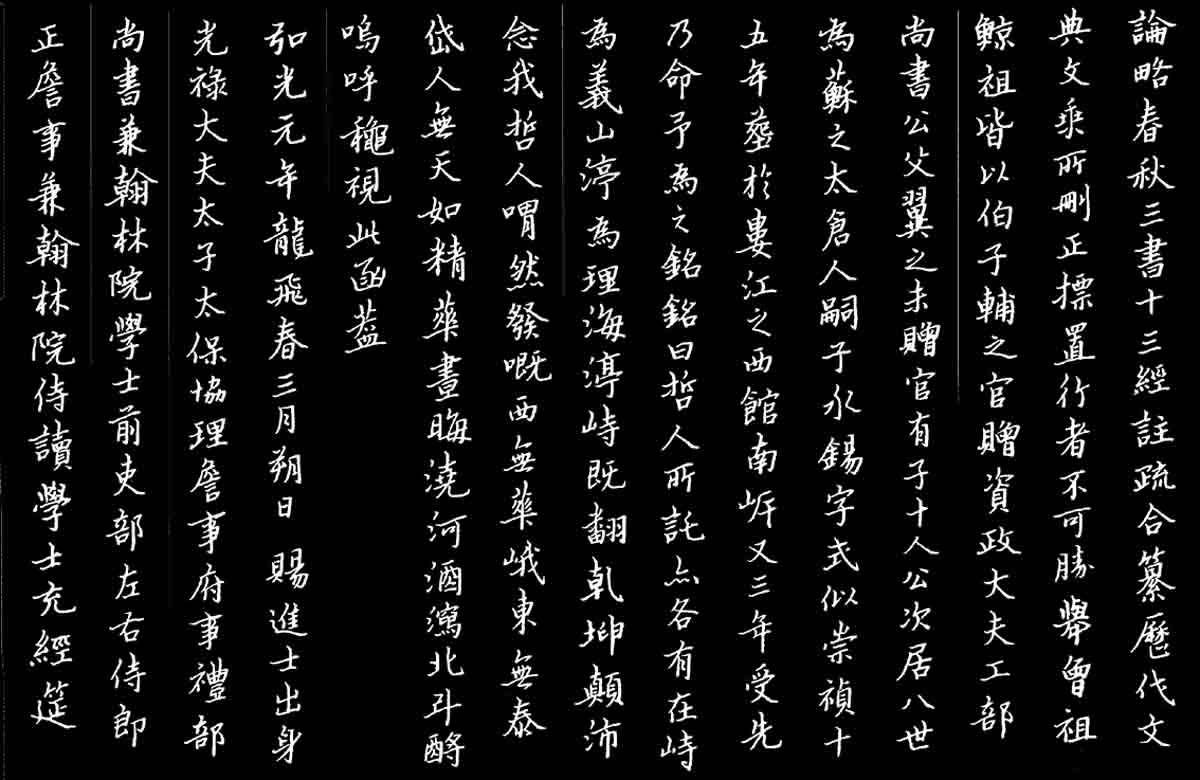 論略春秋三書十三經註疏合纂歷代文
典文乘所刪正摽置行者不可勝舉曾祖
鯨祖皆以伯子輔之官贈資政大夫工部
尚書公父翼之未贈官有子十人公次居八世
為蘇之太倉人嗣子永錫字式似崇禎十
五年塟於婁江之西館南岸又三年受先
乃命予為之銘銘曰哲人所託亦各有在峙
為義山渟為理海渟峙既翻乹坤顛沛
念我哲人喟然發嘅西無華峨東無泰
岱人無天如精華晝晦澆河酒瀉北斗酹
嗚呼龝視此函葢
弘光元年龍飛春三月朔日 賜進士出身
光祿大夫太子太保協理詹事府事禮部
尚書兼翰林院學士前吏部左右侍郎
正詹事兼翰林院侍讀學士充經筵